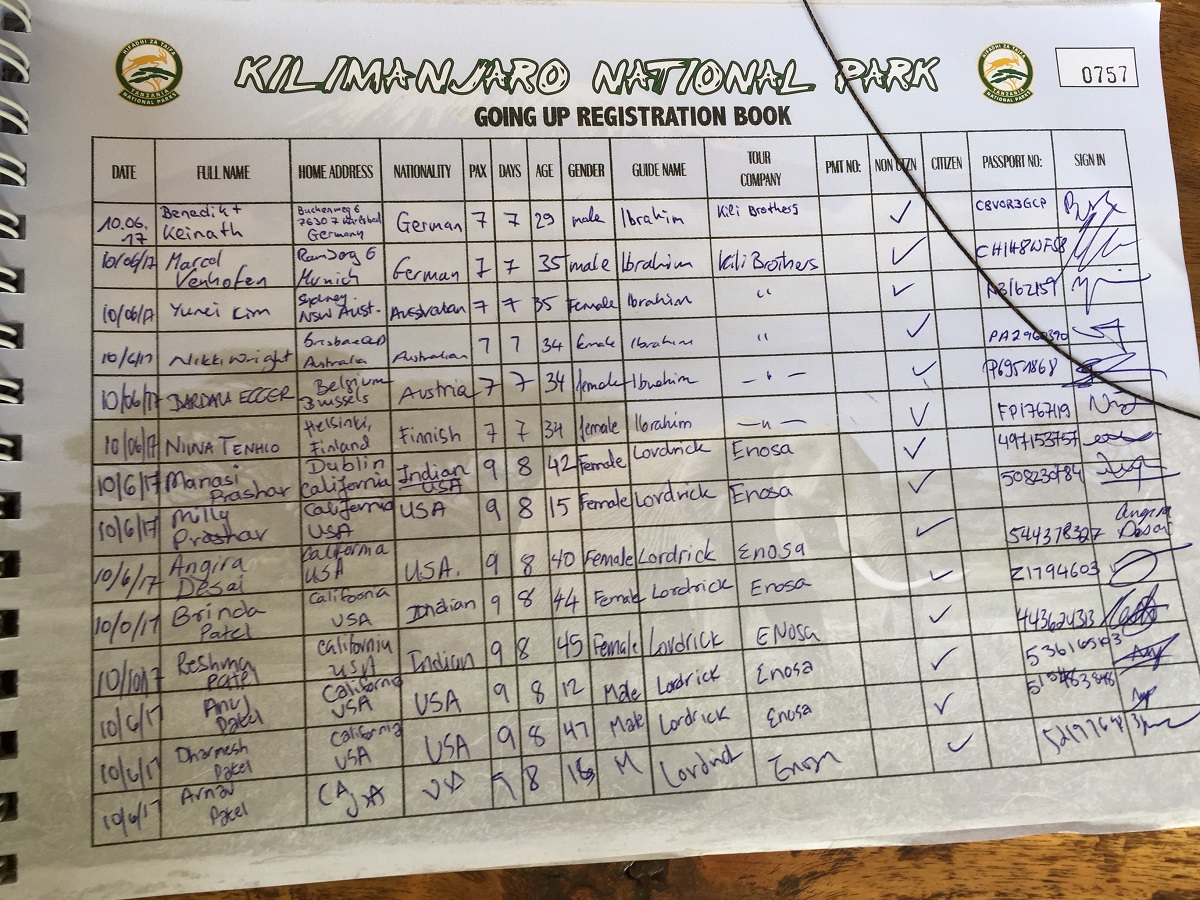 KILIMANJARO NATIONAL PARK
GOING UP REGISTRATION BOOK
0757
HIFADHI ZA TAIFA
TANZANIA
NATIONAL PARKS
DATE FULL NAME HOME ADDRESS NATIONALITY PAX DAYS AGE GENDER GUIDE NAME TOUR COMPANY PMT NO: NON CTZN CITIZEN PASSPORT NO: SIGN IN
10.06.17 Benedikt Keinath Buchenweg 6 76307 Karlsbad Germany German 7 7 29 male Ibrahim Kili Brothers ✓ C8V0R3GCP
10/06/17 Marcel Venhofen 6 Munich German 7 7 35 male Ibrahim Kili Brothers ✓
10/06/17 Yunei Kim Sydney NSW Aust. Australian 7 7 35 Female Ibrahim " ✓
10/6/17 Nikki Wright Brisbane QLD Australia Australian 7 7 34 female Ibrahim " ✓
10/06/17 BARBARA EGGER Belgium Brussels Austria 7 7 34 female Ibrahim — " — ✓ P6951868
10/06/17 NIINA TENHIO Helsinki, Finland Finnish 7 7 34 female Ibrahim — " — ✓ FP1767119
10/6/17 Manasi Prashar Dublin California Indian USA 9 8 42 Female Lordrick Enosa ✓
10/6/17 Milly Prashar California USA USA 9 8 15 Female Lordrick Enosa ✓
10/6/17 Angira Desai California USA USA. 9 8 40 Female Lordrick Enosa ✓ Angira Desai
10/6/17 Brinda Patel California USA Indian 9 8 44 Female Lordrick Enosa ✓ Z1794603
Reshma Patel California USA Indian 9 8 45 Female Lordrick ENosa ✓
10/6/17 Anuj Patel California USA USA 9 8 12 Male Lordrick Enosa ✓
10/6/17 Dharmesh Patel California USA USA 9 8 47 Male Lordrick Enosa ✓
10/6/17 Arnav Patel CA USA 9 8 M Lordrick Enosa ✓